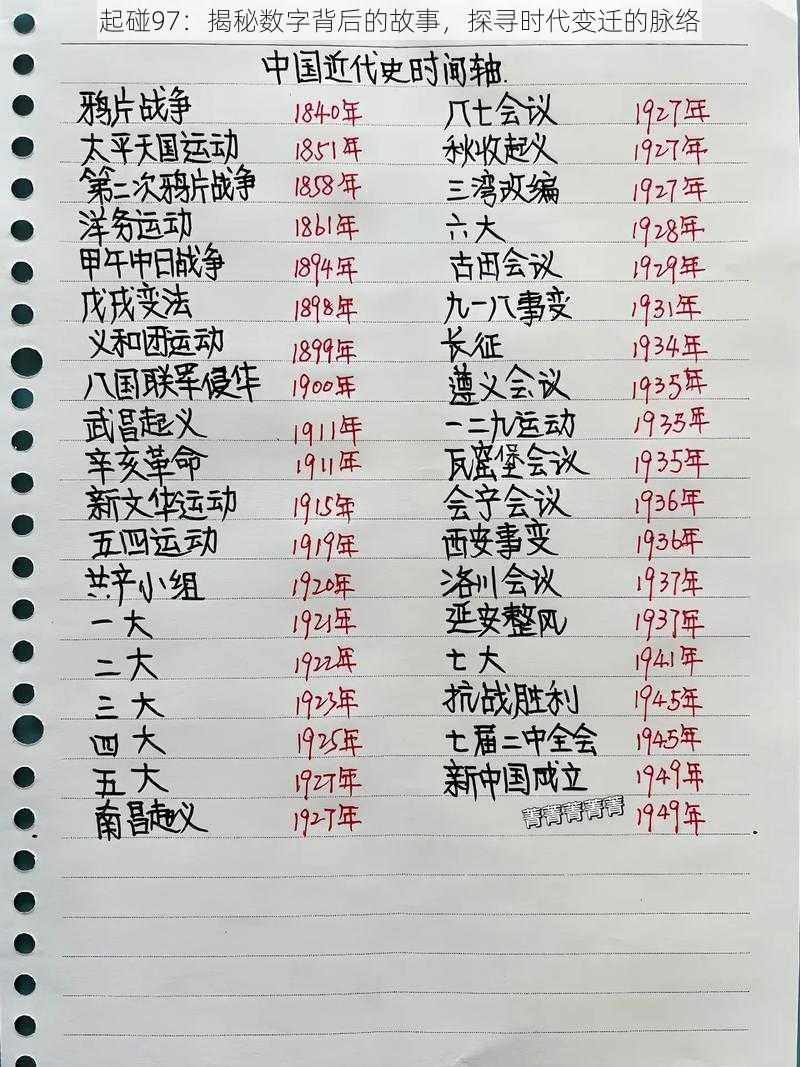 起碰97：揭秘数字背后的故事，探寻时代变迁的脉络
中国近代史时间轴.
鸦片战争 1840年
太平天国运动 1851年
第二次鸦片战争 1858年
洋务运动 1861年
甲午中日战争 1894年
戊戌变法 1898年
义和团运动 1899年
八国联军侵华 1900年
武昌起义 1911年
辛亥革命 1911年
新文华运动 1915年
五四运动 1919年
共产小组 1920年
一大 1921年
二大 1922年
三大 1923年
四大 1925年
五大 1927年
南昌起义 1927年
八七会议 1927年
秋收起义 1927年
三湾改编 1927年
六大 1928年
古田会议 1929年
九一八事变 1931年
长征 1934年
遵义会议 1935年
一二九运动 1935年
瓦窑堡会议 1935年
会宁会议 1936年
西安事变 1936年
洛川会议 1937年
延安整风 1937年
七大 1941年
抗战胜利 1945年
七届二中全会 1945年
新中国成立 1949年
菁菁菁菁菁 1949年